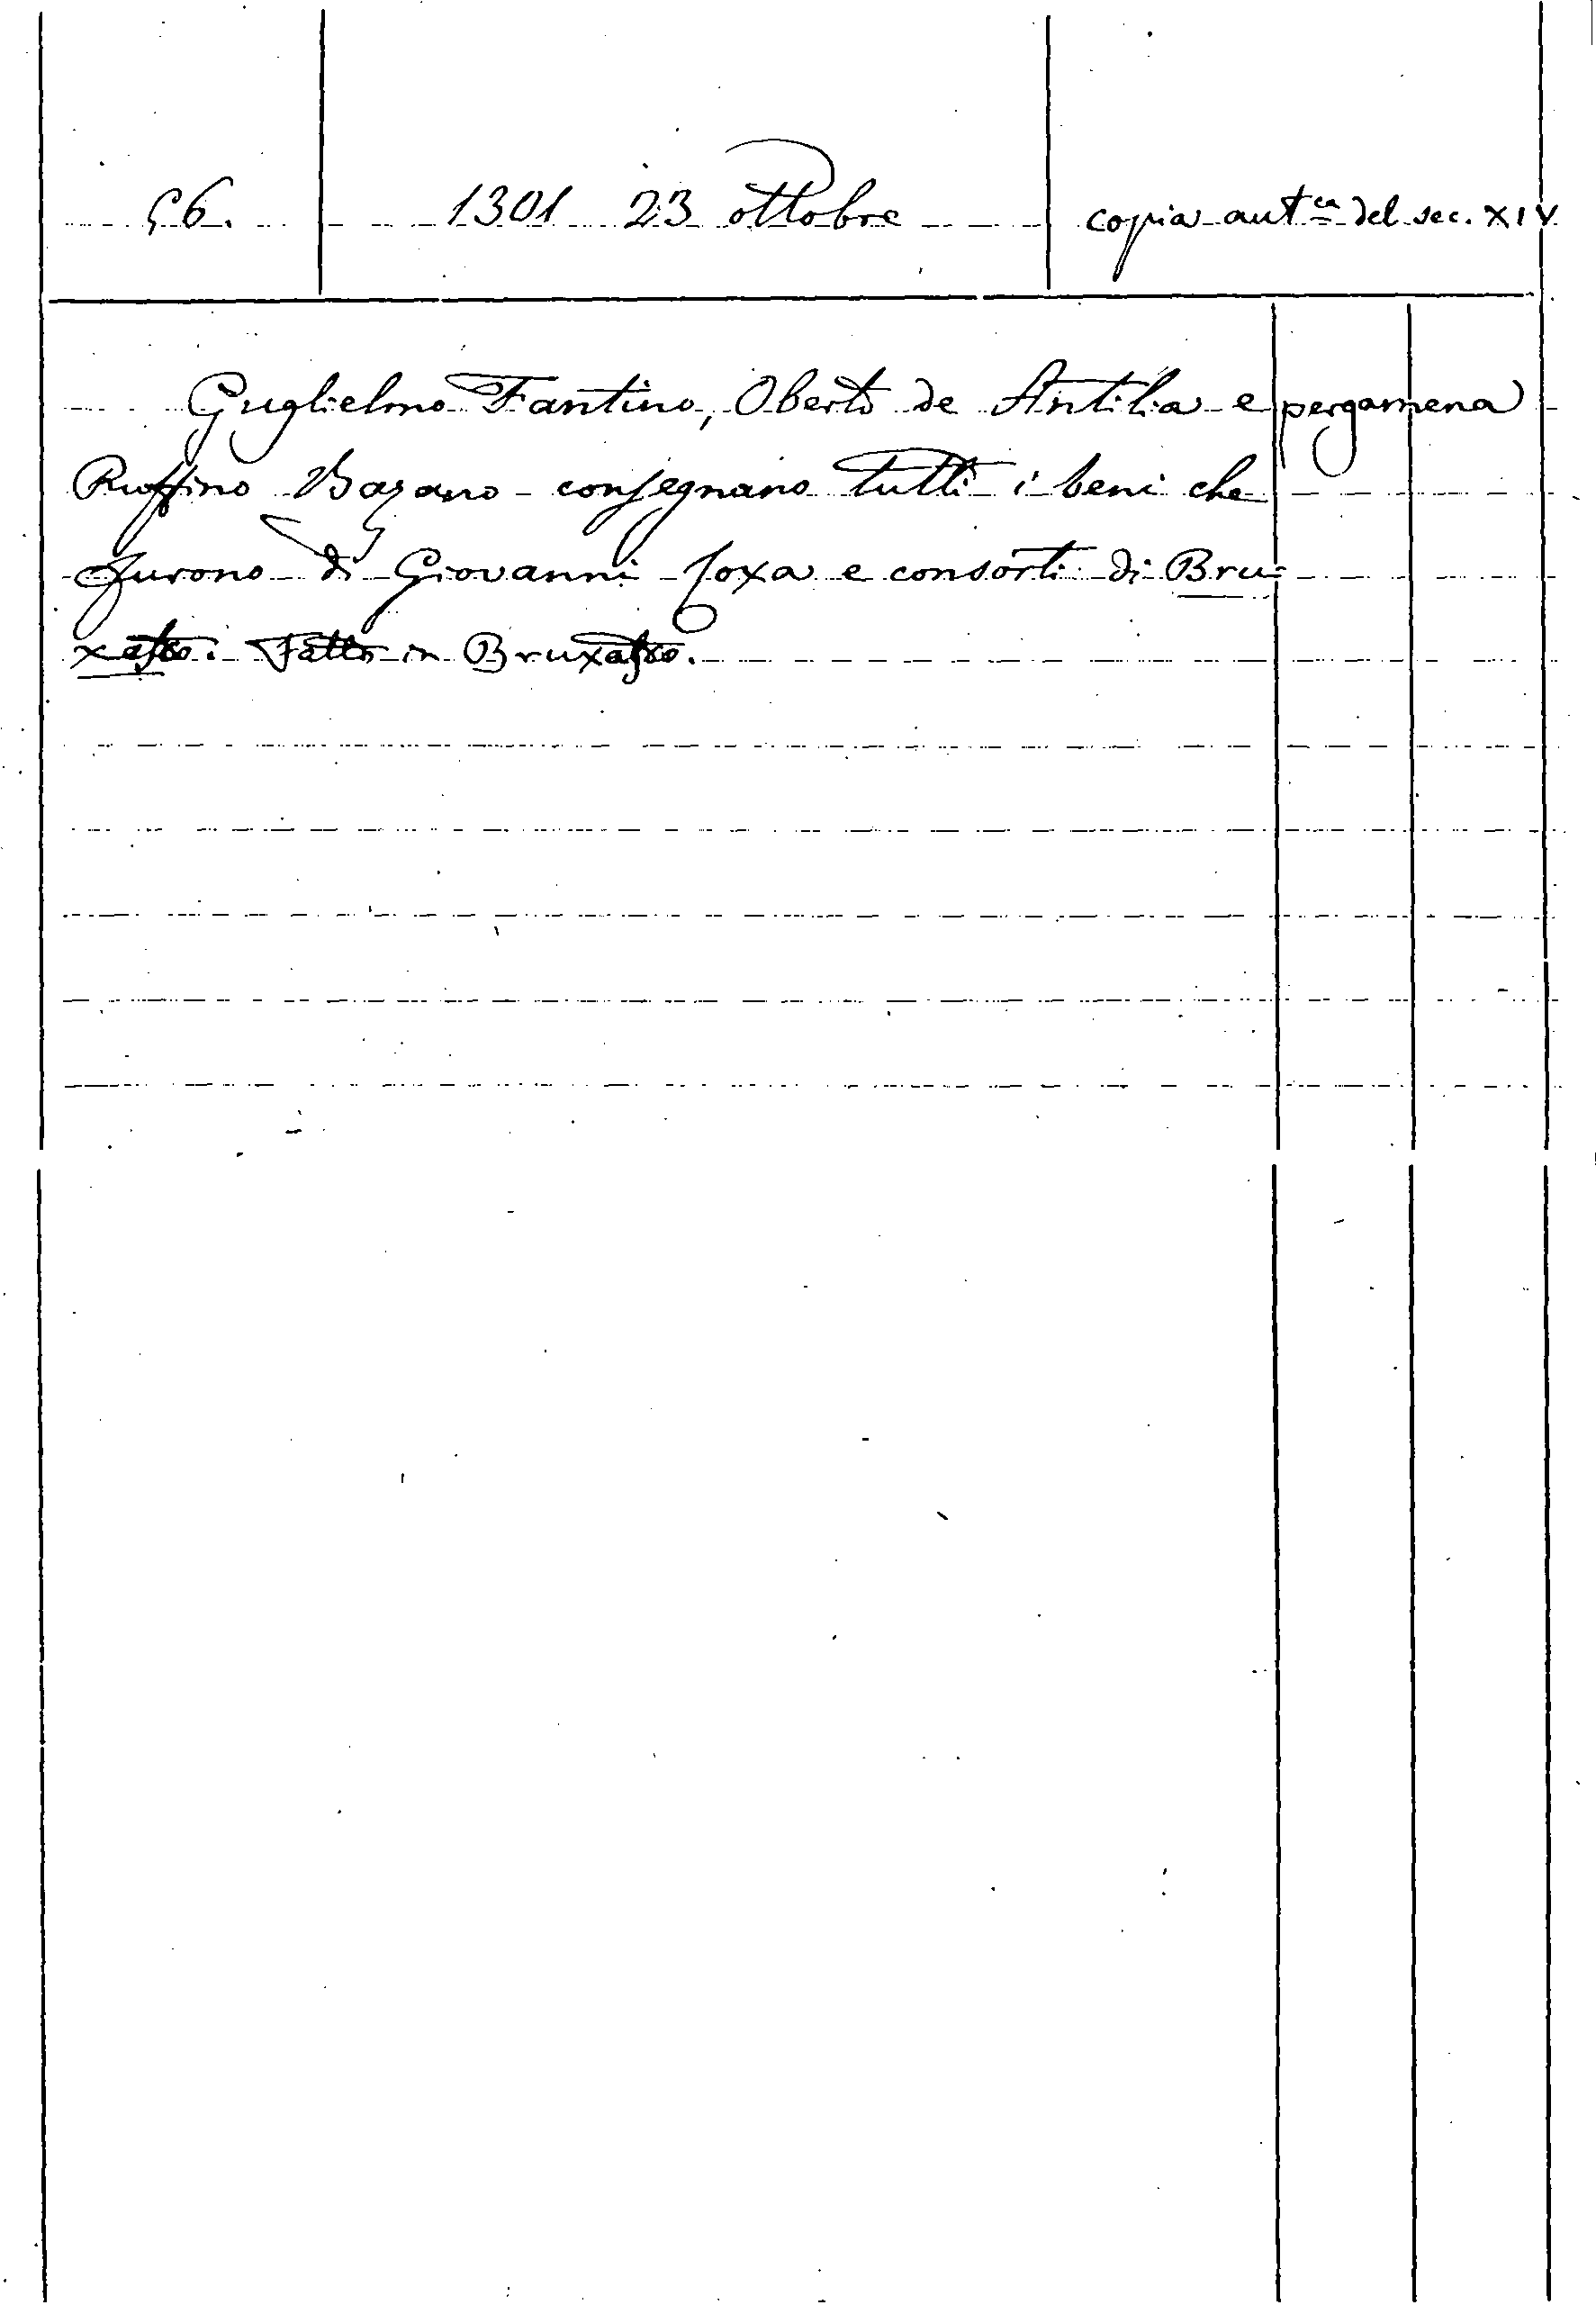 56. 1301 23 ottobre copia aut.ca del sec. XIV
Guglielmo Fantino, Oberto de Antilia e pergamena
Ruffino Bazano consegnano tutti i beni che
furono di Giovanni Coxa e consorti di Bru-
xasco. Fatto in Bruxasco.